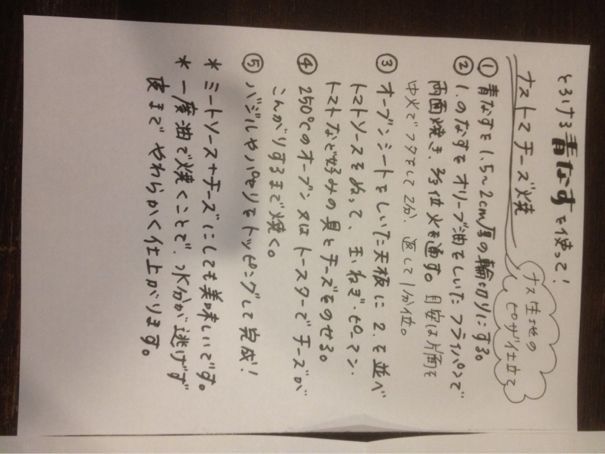 とろける青なすを使って!
ナストマチーズ焼
ナス生地の
ピザ仕立て
① 青なすを1.5~2cm厚の輪切りにする。
② 1.のなすをオリーブ油をしいたフライパンで
両面焼き、火を通す。目安は片面を
中火でフタをして2分、返して1分位。
③ オーブンシートをしいた天板に2.を並べ
トマトソースをぬって、玉ねぎ・ピーマン・
トマトなど好みの具とチーズをのせる。
④ 250℃のオーブン又はトースターでチーズが
こんがりするまで焼く。
⑤ バジルやパセリをトッピングして完成!
* ミートソース+チーズにしても美味しいです。
* 一度油で焼くことで、水分が逃げず
皮までやわらかく仕上がります。